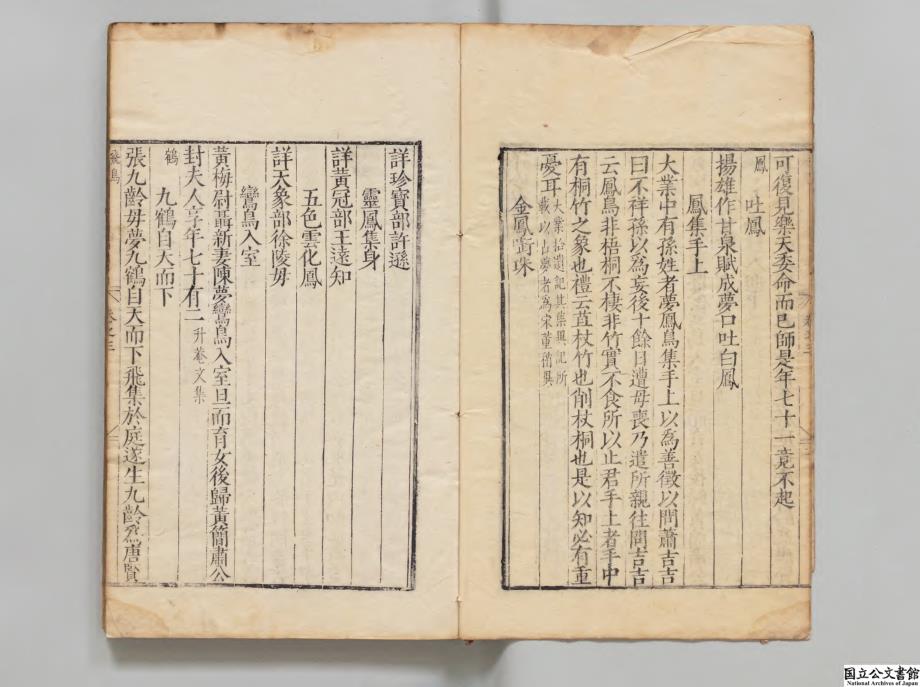 可復見樂天委命而已師是年七十一竟不起
鳳
吐鳳
揚雄作甘泉賦成夢口吐白鳳
鳳集手上
大業中有孫姓者夢鳳鳥集手上以爲善徵以問蕭吉吉
曰不祥孫以爲妄後十餘日遭母喪乃遣所親往問吉吉
云鳳鳥非梧桐不棲非竹實不食所以止君手上者手中
有桐竹之象也禮云苴杖竹也削杖桐也是以知必有重
憂耳
大業拾遺記其集異記所
載以占夢者爲宋董僧與
金鳳銜珠
詳珍寶部許遜
靈鳳集身
詳黃冠部王遠知
五色雲化鳳
詳天象部徐陵母
鸞鳥入室
黃梅尉聶新妻陳夢鸞鳥入室旦而育女後歸黃簡肅公
封夫人享年七十有二
升菴文集
鶴
九鶴自天而下
張九齡母夢九鶴自天而下飛集於庭遂生九齡爲唐賢
飛鳥
卷之三
国立公文書館
National Archives of Japan